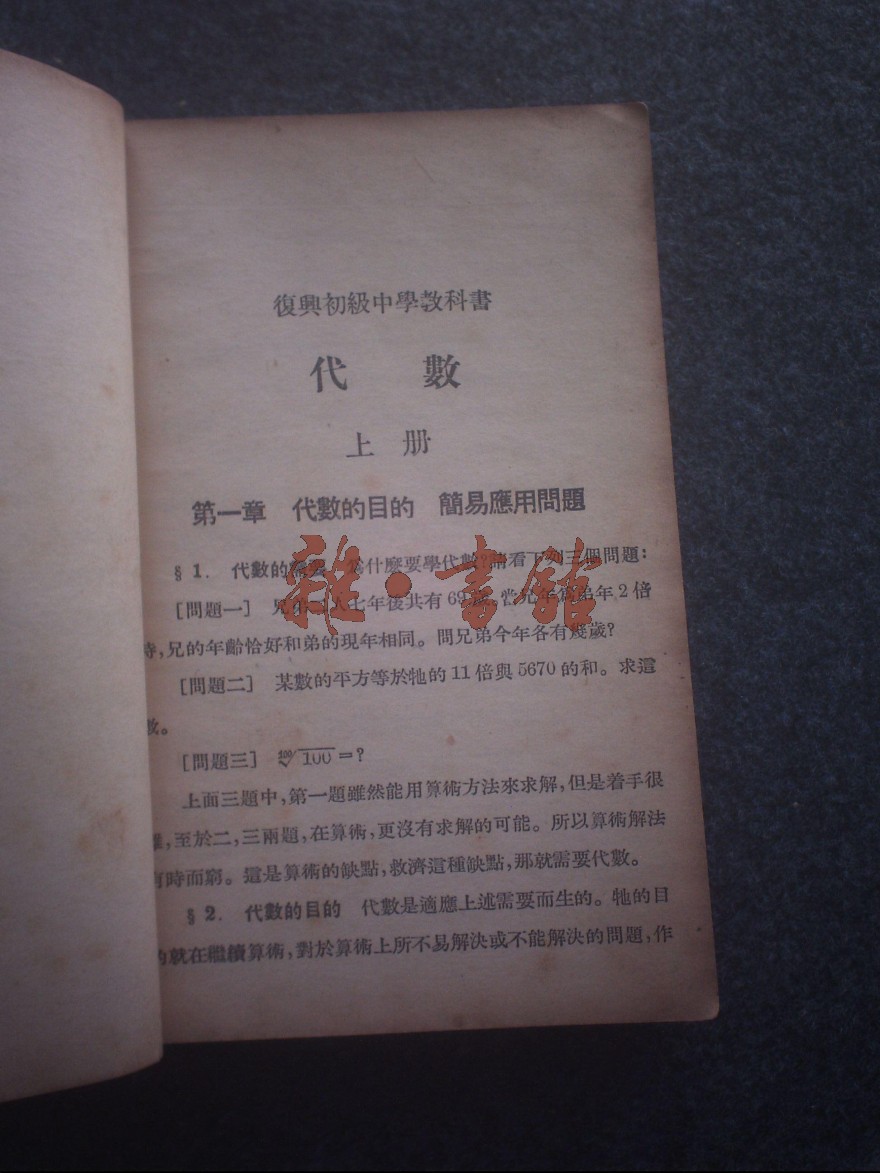 復興初級中學教科書
代 數
上 册
第一章 代數的目的 簡易應用問題
§ 1. 代數的 爲什麼要學代數?請看下列三個問題:
[問題一] 兄弟二人七年後共有69歲。當兄年爲弟年2倍
時,兄的年齡恰好和弟的現年相同。問兄弟今年各有幾歲?
[問題二] 某數的平方等於牠的11倍與5670的和。求這
數。
[問題三] =?
上面三題中,第一題雖然能用算術方法來求解,但是着手很
難,至於二,三兩題,在算術,更沒有求解的可能。所以算術解法
有時而窮。這是算術的缺點,救濟這種缺點,那就需要代數。
§ 2. 代數的目的 代數是適應上述需要而生的。牠的目
的就在繼續算術,對於算術上所不易解決或不能解決的問題,作
雜·書館